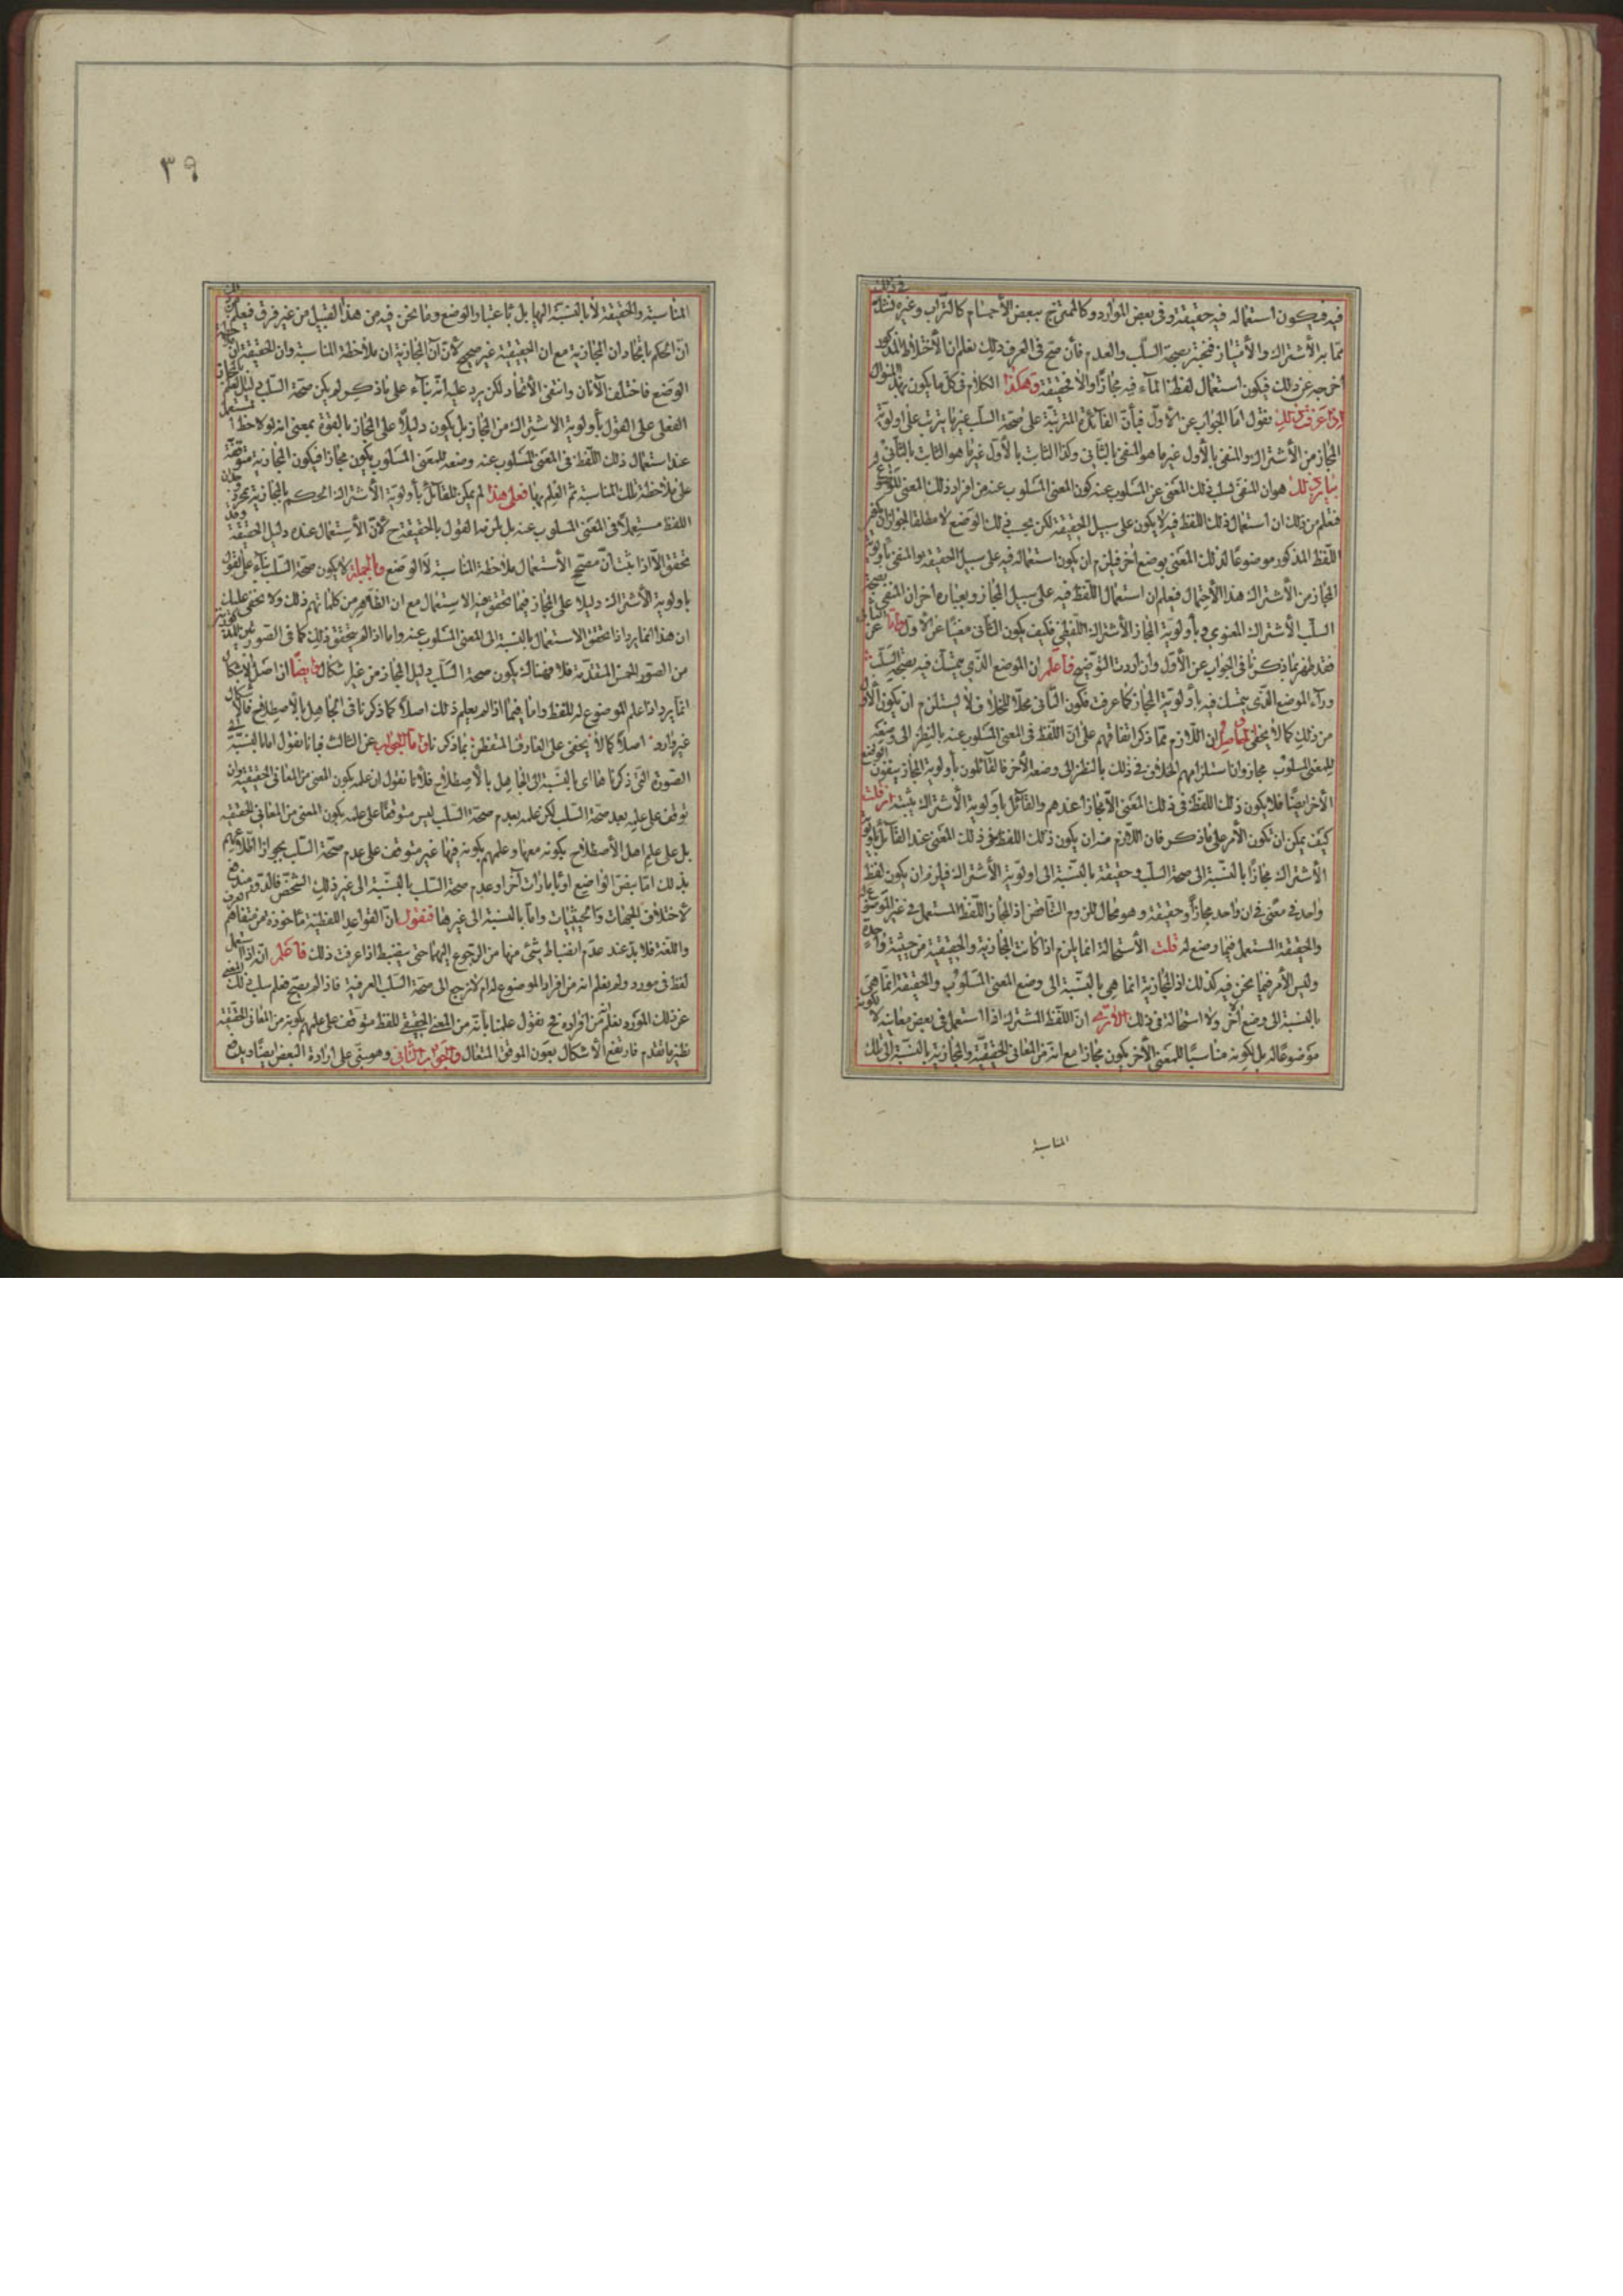 فيه فيكون استعماله فيه حقيقة وفى بعض الموارد كالممتزج ببعض الأجسام كالتراب وغيره فنشك
فى ذلك
مما به الأشتراك والأمتياز فنختبر بصحة السلب والعدم فأن صح فى العرف ذلك نعلم ان الأختلاط المذكور
اخرجه عن ذلك فيكون استعمال لفظ المآء فيه مجازا والا حقيقة وهكذا الكلام فى كل ما يكون بهذا المنوال
اذا عرفت ذلك نقول اما الجواب عن الأول فبأن الفائدة المترتبة على صحة السلب غير ما يترتب على اولوية
المجاز من الأشتراك والمنفى بالأول غير ما هو المنفى بالثانى وكذا الثابت بالأول غير ما هو الثابت بالثانى و
بيان ذلك هو ان المنفى بسلب ذلك المعنى عن المسلوب عنه كون المعنى المسلوب عنه من افراد ذلك المعنى الموضوع
فنعلم من ذلك ان استعمال ذلك اللفظ فيه لا يكون على سبيل الحقيقة لكن بحسب ذلك الوضع لا مطلقا لجواز ان يكون
اللفظ المذكور موضوعا لذلك المعنى بوضع اخر فيلزم ان يكون استعماله فيه على سبيل الحقيقة والمنفى بأولوية
المجاز من الأشتراك هذا الأحتمال فيعلم ان استعمال اللفظ فيه على سبيل المجاز وبعبارة اخرى ان المنفى بصحة
السلب الأشتراك المعنوى وبأولوية المجاز الأشتراك اللفظى فكيف يكون الثانى مغنيا عن الأول واما عن الثانى
فقد ظهر بما ذكرنا فى الجواب عن الأول وان اردت التوضيح فاعلم ان الموضع الذى يتمسك فيه بصحة السلب
ورآء الموضع الذى يتمسك فيه بأولوية المجاز كما عرفت فكون الثانى محلا للخلاف لا يستلزم ان يكون الأول
من ذلك كما لا يخفى والحاصل ان اللازم مما ذكر اتفاقهم على ان اللفظ فى المعنى المسلوب عنه بالنظر الى وضعه
للمعنى المسلوب مجاز وانا ستلزامهم الخلاف فى ذلك بالنظر الى وضعه الأخر فالقائلون بأولوية المجاز ينفون الوضع
الأخر ايضا فلا يكون ذلك اللفظ فى ذلك المعنى الا مجازا عندهم والقائل بأولوية الأشتراك يثبته ان قلت
كيف يمكن ان يكون الأمر على ما ذكر فان اللازم منه ان يكون ذلك اللفظ فى ذلك المعنى عند القائل بأولوية
الأشتراك مجازا بالنسبة الى صحة السلب وحقيقة بالنسبة الى اولوية الأشتراك فيلزم ان يكون لفظ
واحد فى معنى فى ان واحد مجازا وحقيقة وهو محال للزوم التناقض اذ المجاز اللفظ المستعمل فى غير الموضوع له
والحقيقة المستعمل فيما وضع له قلت الأستحالة انما يلزم اذا كانت المجازية والحقيقية من حيثية واحدة
وليس الأمر فيما نحن فيه كذلك اذ المجازية انما هى بالنسبة الى وضع المعنى المسلوب والحقيقة انما هى
بالنسبة الى وضع آخر ولا استحالة فى ذلك الا ترى ان اللفظ المشترك اذا استعمل فى بعض معانيه لا لكونه
موضوعا له بل لكونه مناسبا للمعنى الأخر يكون مجازا مع انه من المعانى الحقيقية والمجازية بالنسبة الى تلك
المناسبة
٣٩
المناسبة والحقيقة لا بالنسبة اليها بل باعتبار الوضع وما نحن فيه من هذا القبيل من غير فرق فيعلم
ان الحكم باتحاد ان المجازية مع ان الحقيقية غير صحيح لأن آن المجازية ان ملاحظة المناسبة وان الحقيقة ان
الوضع فاختلف الآنان وانتفى الأتحاد لكن يرد عليه انه بنآء على ما ذكر لو لم يكن صحة السلب دليل
الفعلى على القول بأولوية الاشتراك من المجاز بل يكون دليلا على المجاز بالقوة بمعنى انه لو لاحظ المستعمل
عند استعمال ذلك اللفظ فى المعنى المسلوب عنه وضعه للمعنى المسلوب يكون مجازا فيكون المجازية متوقفة
على ملاحظة تلك المناسبة ثم العلم بها فعلى هذا لم يمكن للقائل بأولوية الأشتراك الحكم بالمجازية بمجرد
اللفظ مستعملا فى المعنى المسلوب عنه بل يلزمه القول بالحقيقة ح لأن الأستعمال عنده دليل الحقيقة
تحقق الا اذا ثبت أن مصحح الأستعمال ملاحظة المناسبة لا الوضع وبالجملة لا يكون صحة السلب بنآء على القول
باولوية الأشتراك دليلا على المجاز فيما تحقق فيه الاستعمال مع ان الظاهر من كلماتهم ذلك ولا يخفى عليك
ان هذا انما يرد اذا تحقق الاستعمال بالنسبة الى المعنى المسلوب عنه واما اذا لم يتحقق ذلك كما فى الصورتين
من الصور الخمس المتقدمة فلا فهناك يكون صحة السلب دليل المجاز من غير اشكال وايضا ان اصل الاشكال
انما يرد اذا علم الموضوع له للفظ واما فيما اذا لم يعلم ذلك اصلا كما ذكرنا فى الجاهل بالأصطلاح فالاشكال
غير وارد اصلا كما لا يخفى على العارف المتفطن بما ذكرنا واما الجواب عن الثالث فبانا نقول اما بالنسبة
الصورة التى ذكرناها اى بالنسبة الى الجاهل بالأصطلاح فلأنا نقول ان علمه بكون المعنى من المعانى الحقيقية وان
توقف على علمه بعدم صحة السلب لكن علمه بعدم صحة السلب ليس متوقفا على علمه بكون المعنى من المعانى الحقيقة
بل على علم اهل الأصطلاح بكونه منها وعلمهم بكونه فيها غير متوقف على عدم صحة السلب بجواز اطلاعهم
بذلك اما بنص الواضع او بأمارات آخر او عدم صحة السلب بالنسبة الى غير ذلك الشخص فالدور مندفع
لأختلاف الجهات والحيثيات واما بالنسبة الى غيرها فنقول ان القواعد اللفظية مأخوذة من تفاهم العرف
واللغة فلا بد عند عدم انضباط شئ منها من الرجوع اليهما حتى ينضبط اذا عرفت ذلك فاعلم انه اذا استعمل
لفظ فى مورد ولم نعلم انه من افراد الموضوع له ام لا نرجع الى صحة السلب العرفية فاذا لم يصح فعلم سلب ذلك المعنى
عن ذلك المورد نعلم من افراده فح نقول علمنا بأنه من المعنى الحقيقى للفظ متوقف على علمهم بكونه من المعانى الحقيقة
نظير ما تقدم فارتفع الأشكال بعون الموفق المتعال والجواب الثانى وهو مبنى على ارادة البعض ايضا وبدفع